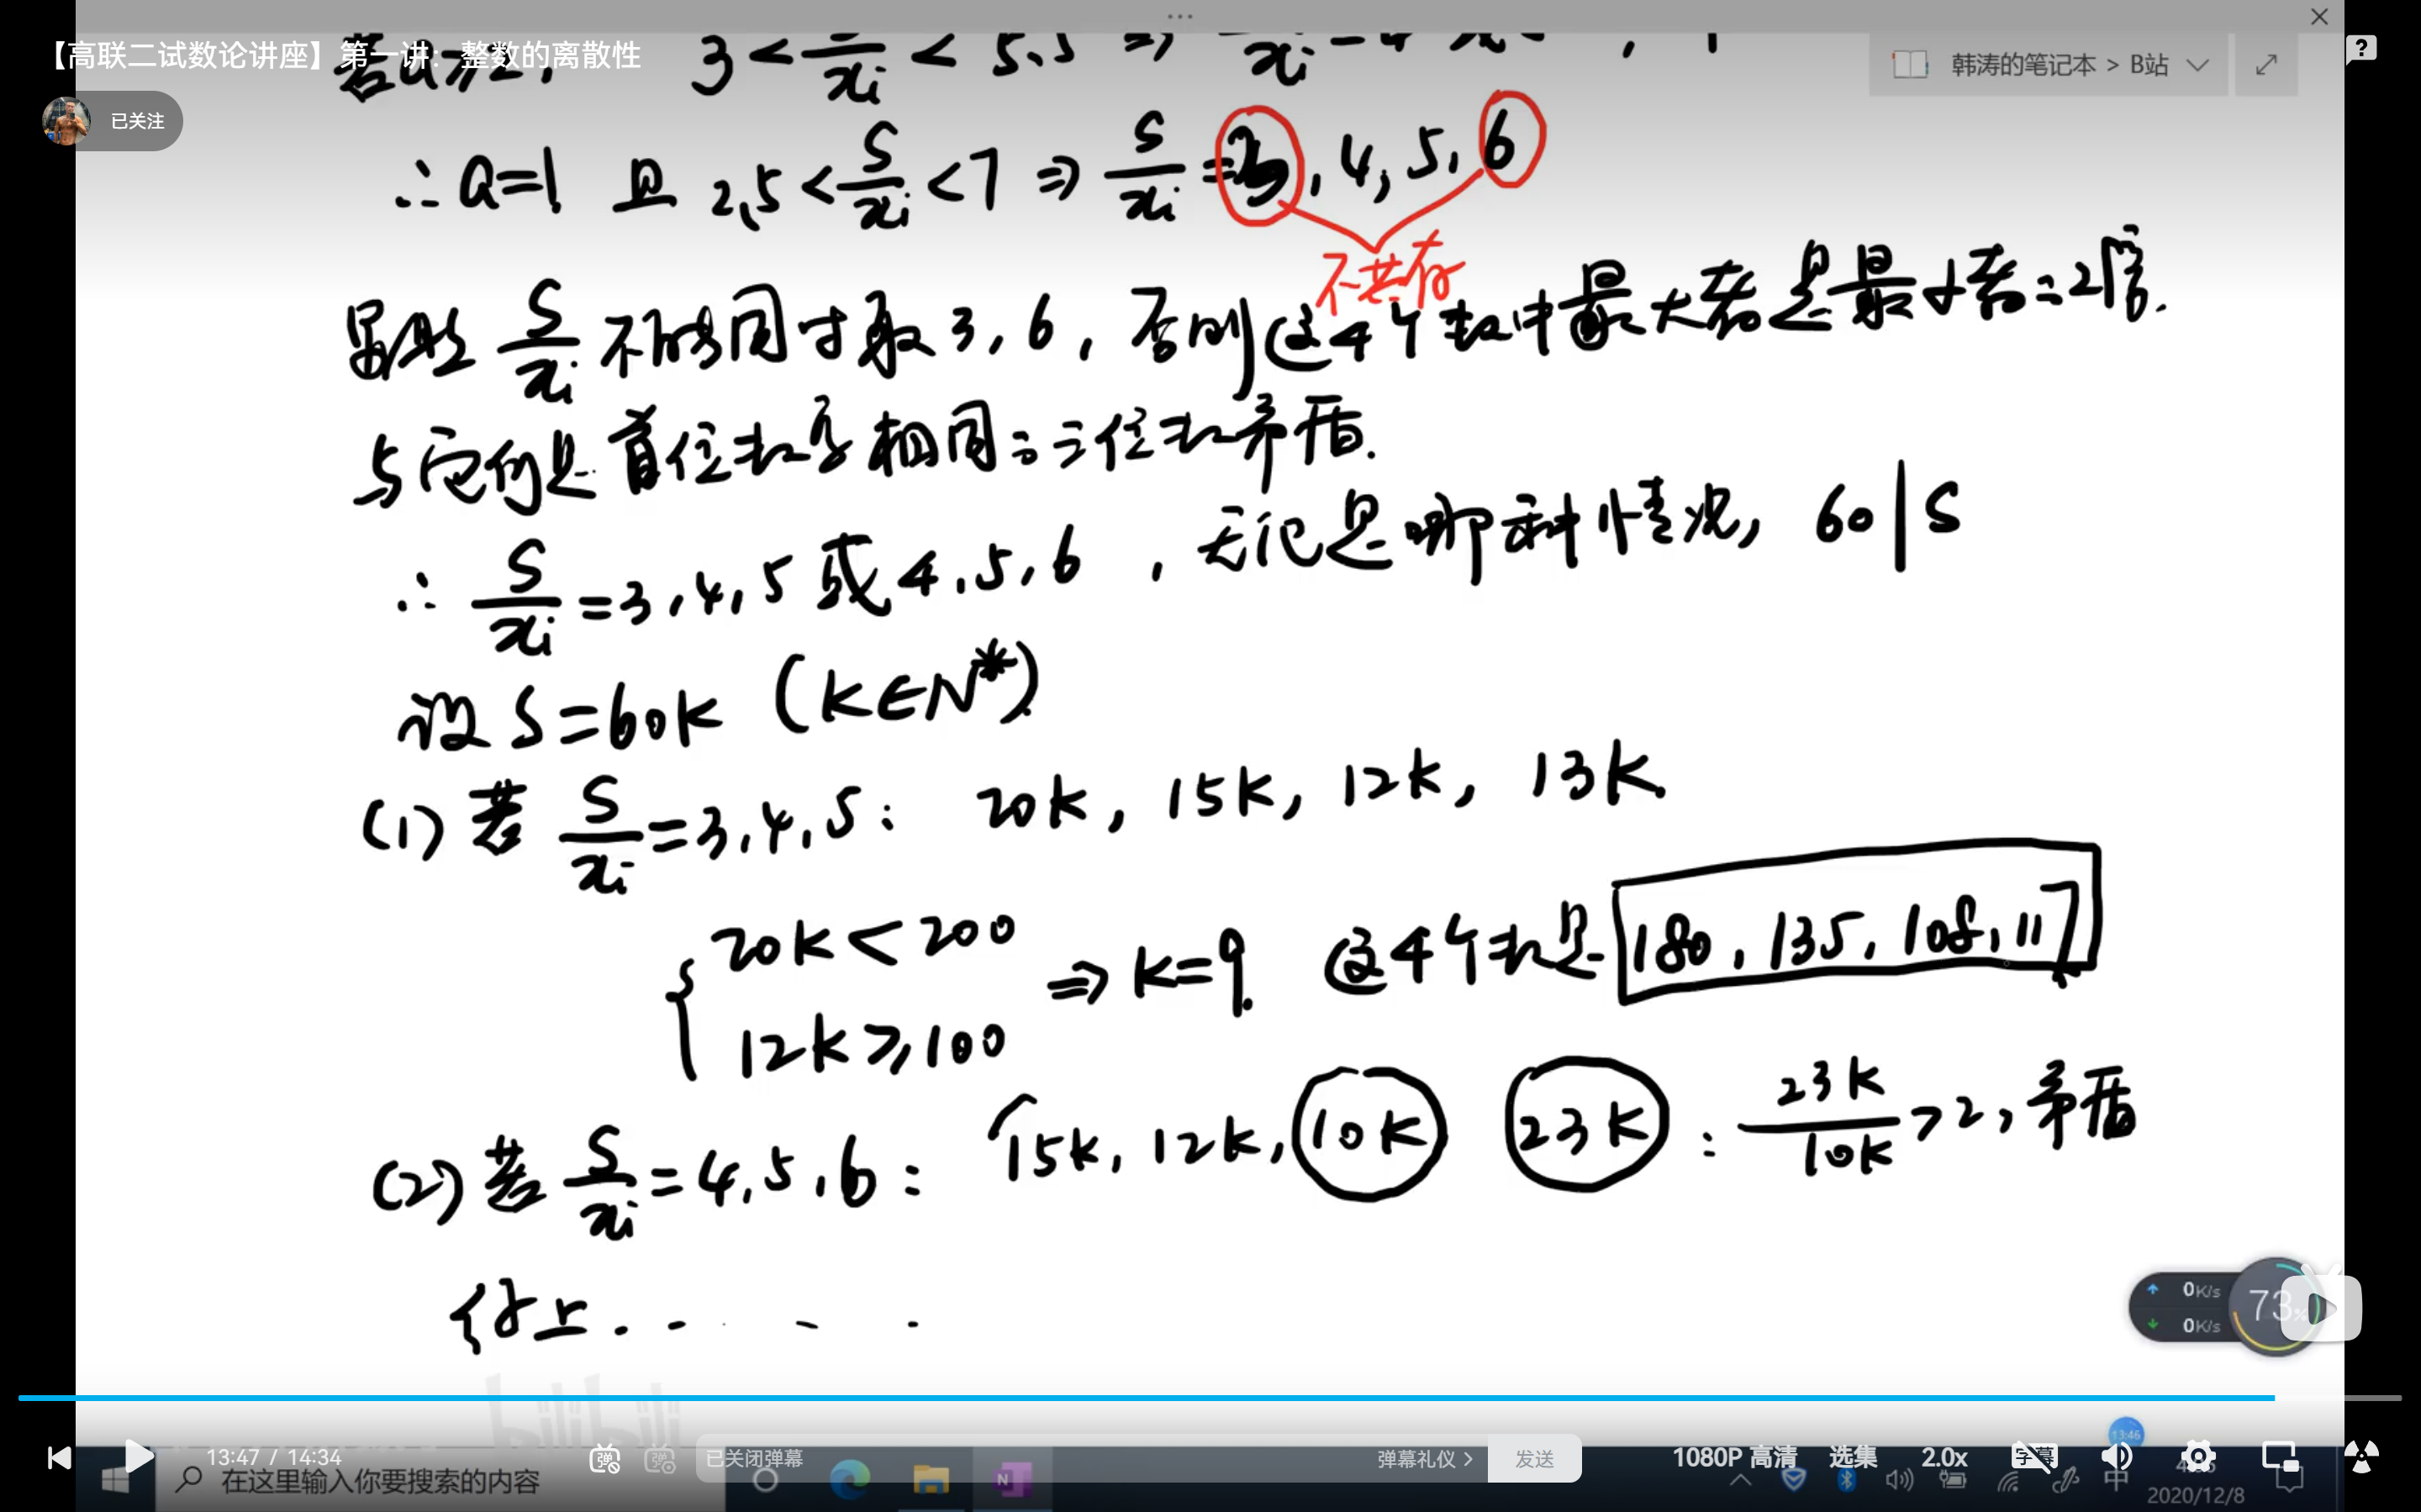 【高联二试数论讲座】第一讲：整数的离散性
韩涛的笔记本 > B站
已关注
若a≥2, 3<S/xi<5.5 ⇒
∴a=1 且 2.5<S/xi<7 ⇒ S/xi=3,4,5,6
不共存
显然 S/xi 不能同时取3,6, 否则这4个数中最大者是最小者的2倍.
与它们是首位数字相同的三位数矛盾.
∴ S/xi=3,4,5或4,5,6, 无论是哪种情况, 60|S
设S=60k (k∈N*)
(1)若 S/xi=3,4,5: 20k, 15k, 12k, 13k
{20k<200
12k≥100 ⇒ k=9. 这4个数是 180, 135, 108, 117
(2)若 S/xi=4,5,6: 15k, 12k, 10k 23k : 23k/10k>2, 矛盾
综上.....
0K/s
0K/s
73%
bilibili
13:46
13:47 / 14:34
已关闭弹幕
弹幕礼仪 >
发送
1080P 高清
选集
2.0x
字幕
在这里输入你要搜索的内容
中
2020/12/8